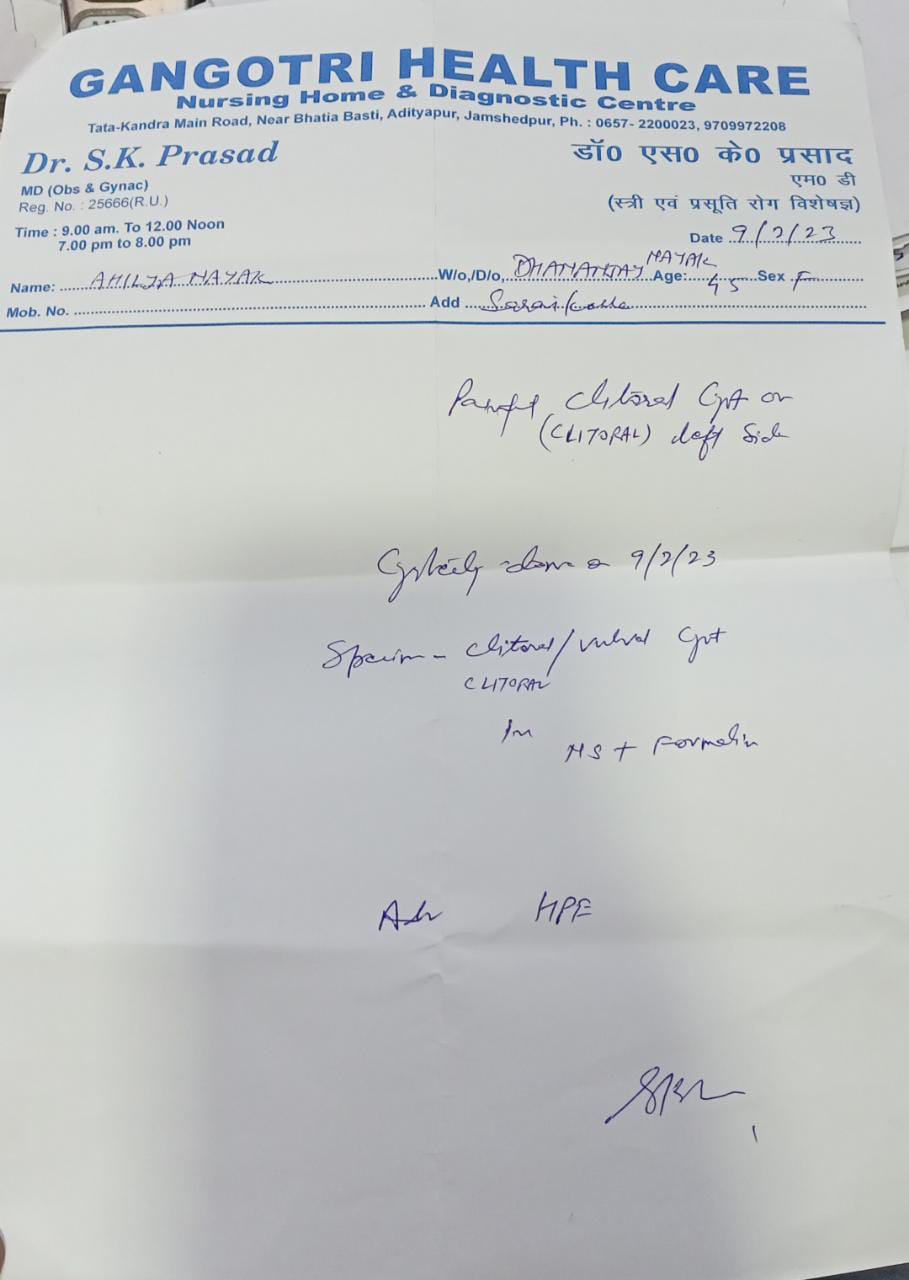 GANGOTRI HEALTH CARE
Nursing Home & Diagnostic Centre
Tata-Kandra Main Road, Near Bhatia Basti, Adityapur, Jamshedpur, Ph. : 0657- 2200023, 9709972208
Dr. S.K. Prasad
डॉ0 एस0 के0 प्रसाद
MD (Obs & Gynac)
एम0 डी
Reg. No. : 25666(R.U.)
(स्त्री एवं प्रसूति रोग विशेषज्ञ)
Time : 9.00 am. To 12.00 Noon
7.00 pm to 8.00 pm
Date 9/2/23
Name: AHILYA NAYAK W/o,/D/o, DHANANJAY NAYAK Age: 45 Sex F
Mob. No. Add Saraikella
Painful, clitoral Cyst on
(CLITORAL) left Side
done on 9/2/23
Specimen - clitoral/vulval Cyst
CLITORAL
In
NS + Formalin
Adv HPE